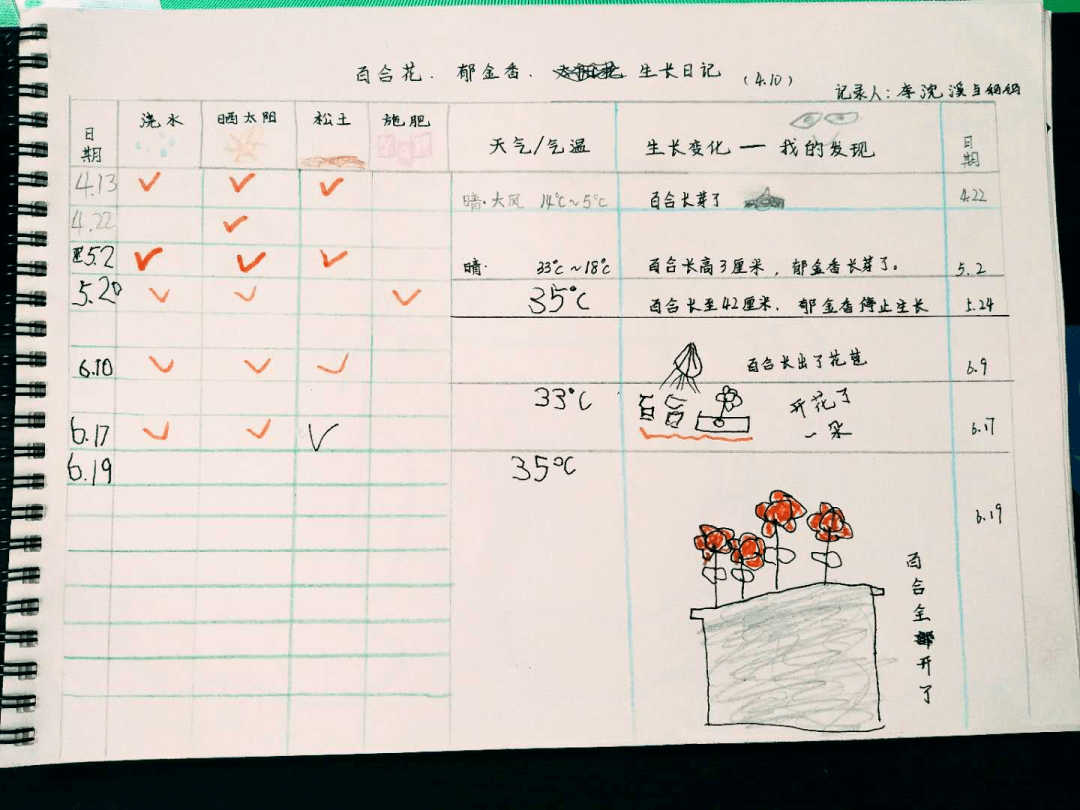 百合花．郁金香． 生长日记 (4.10)
记录人：李沈溪与妈妈
日期 浇水 晒太阳 松土 施肥 天气/气温 生长变化—我的发现 日期
4.13 ✓ ✓ ✓ 晴·大风 14℃~5℃ 百合长芽了 4.22
4.22 ✓
5.2 ✓ ✓ ✓ 晴· 33℃~18℃ 百合长高3厘米，郁金香长芽了。 5.2
5.20 ✓ ✓ ✓ 35℃ 百合长至42厘米，郁金香停止生长 5.24
6.10 ✓ ✓ ✓ 百合长出了花苞 6.9
33℃ 开花了
6.17 ✓ ✓ ✓ 一朵 6.17
6.19 35℃ 6.19
百合全部开了